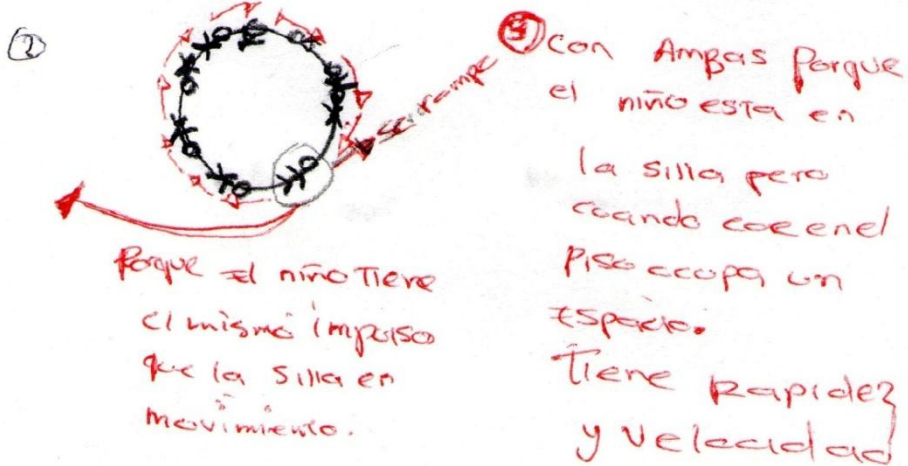 ②
se rrompe
Porque el niño Tiene
el mismo impulso
que la silla en
movimiento.
③ con Ambas Porque
el niño esta en
la silla pero
cuando cae enel
Piso ocupa un
Espacio.
Tiene Rapidez
y velocidad